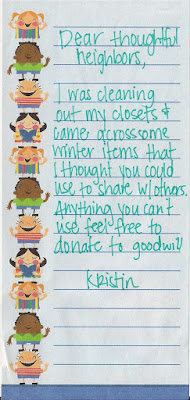 Dear thoughtful
neighbors,
I was cleaning
out my closets &
came across some
winter items that
I thought you could
use to share w/others.
Anything you can't
use feel free to
donate to goodwill
Kristin